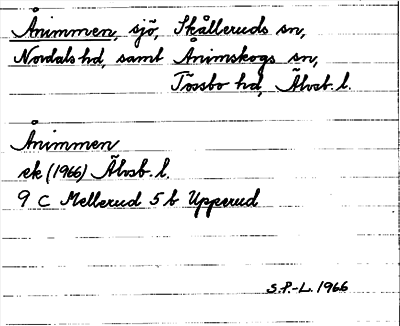 Ånimmen, sjö, Skålleruds sn,
Nordals hd, samt Ånimskogs sn,
Tössbo hd, Älvsb. l.
Ånimmen
ek (1966) Älvsb. l.
9 C Mellerud 5 b Upperud
S.P.-L. 1966